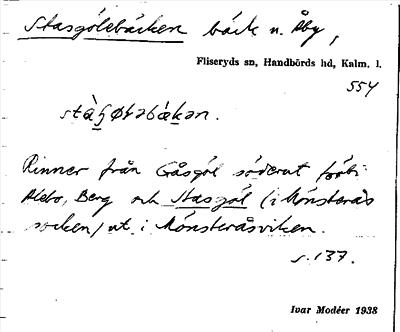 Stasgölebäcken bäck n. Åby,
Fliseryds sn, Handbörds hd, Kalm. l.
554
Rinner från Gåsgöl söderut förbi
Alebo, Berg och Stasgöl (i Mönsterås
socken) ut i Mönsteråsviken.
s. 137.
Ivar Modéer 1938